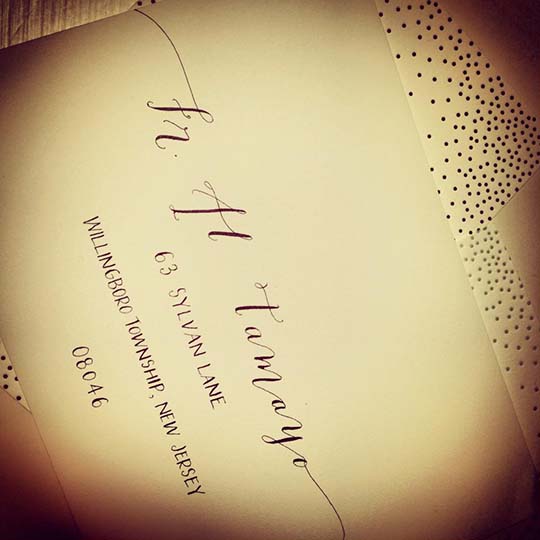 Fr. Al Tamayo
63 SYLVAN LANE
WILLINGBORO TOWNSHIP, NEW JERSEY
08046